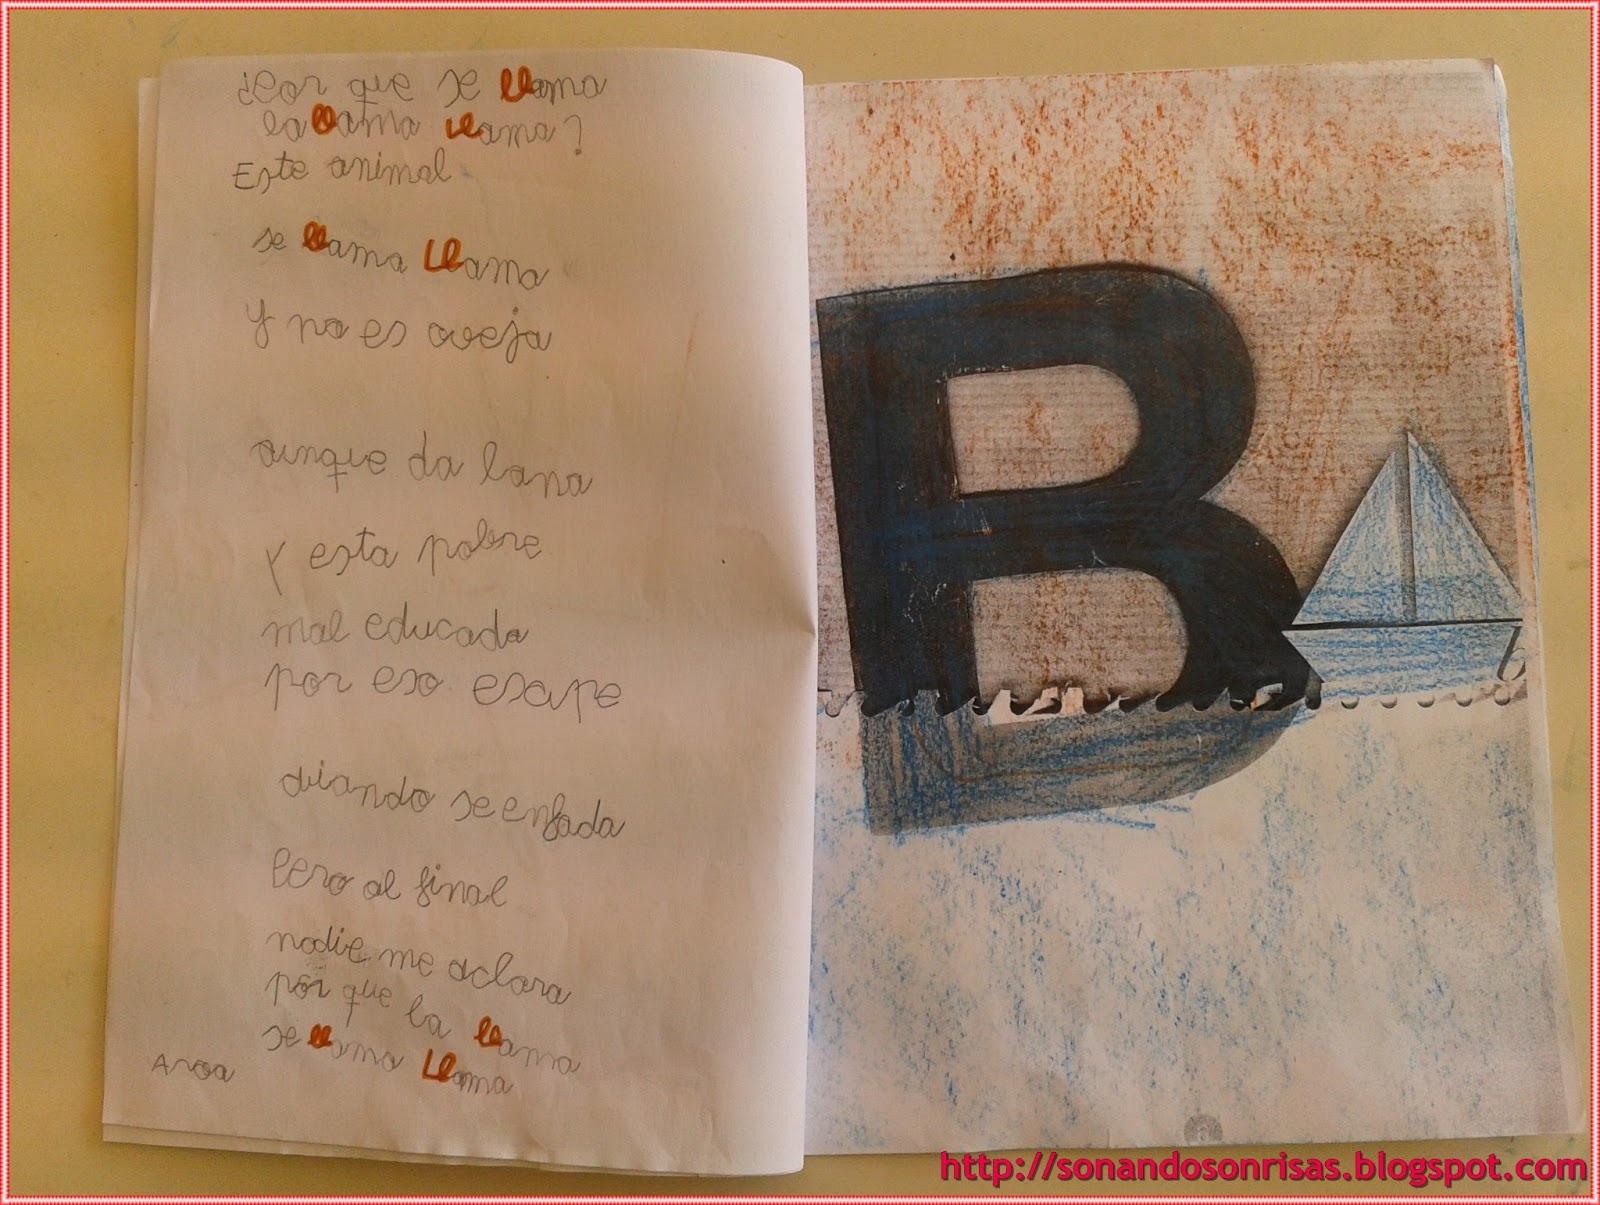 ¿Por que se llama
la llama Llama?
Este animal
se llama Llama
Y no es oveja
aunque da lana
Y esta pobre
mal educada
por eso escupe
cuando se enfada
Pero al final
nadie me aclara
por que la llama
se llama Llama
Aroa
B
b
http://sonandosonrisas.blogspot.com